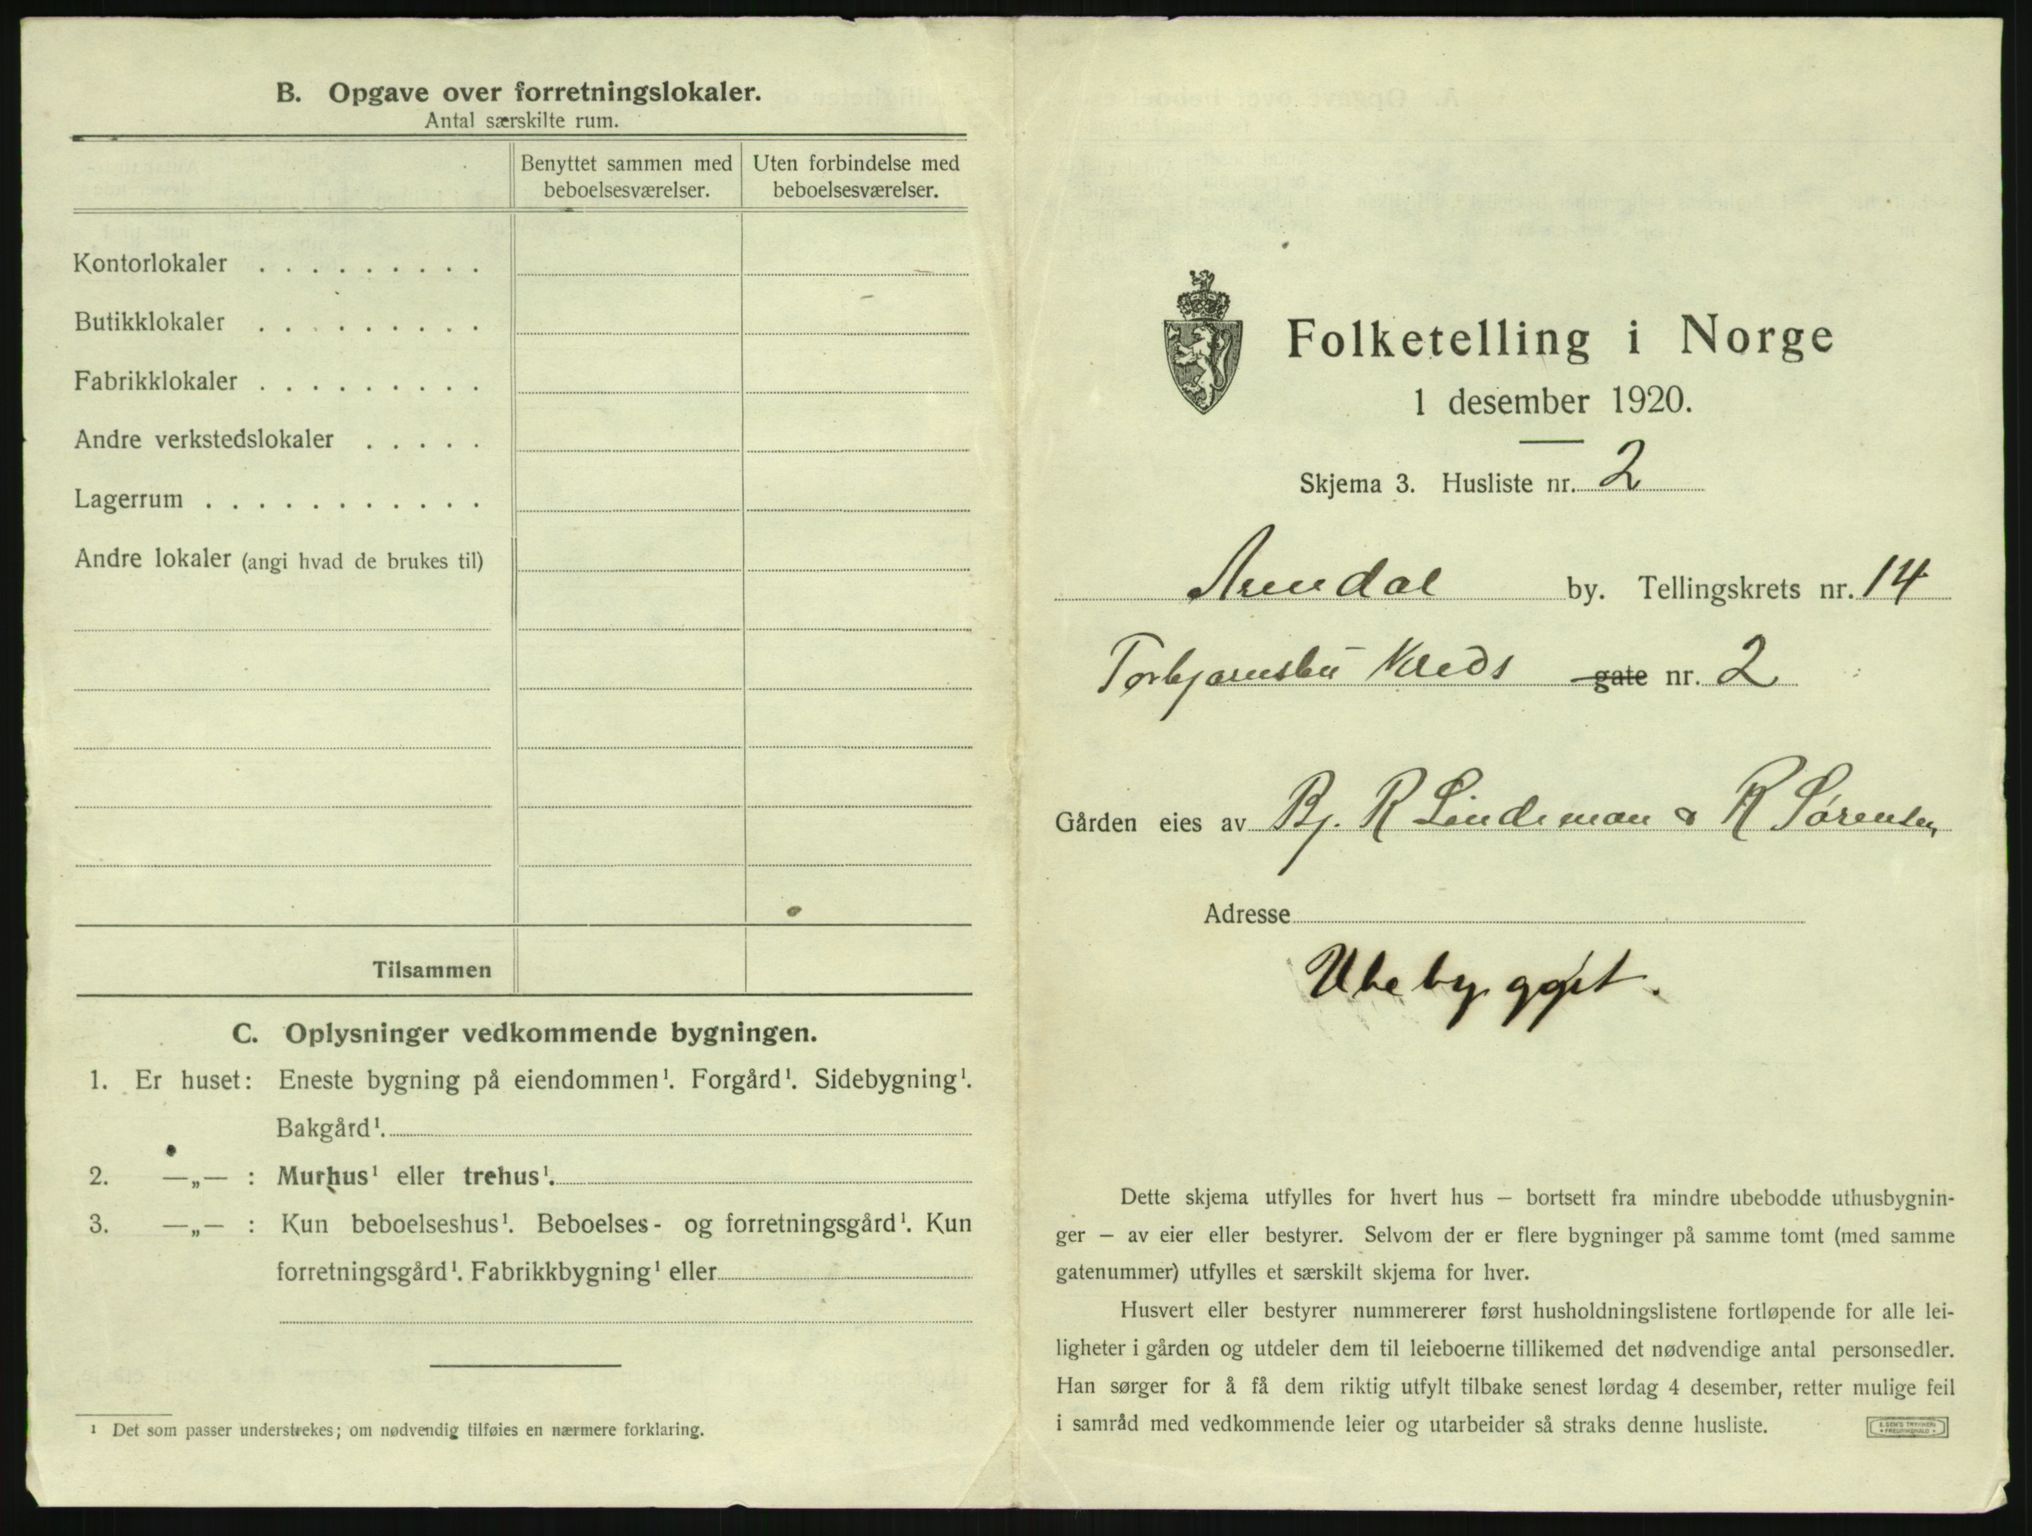 B. Opgave over forretningslokaler.
Antal særskilte rum.
Benyttet sammen med beboelsesværelser.
Uten forbindelse med beboelsesværelser.
Kontorlokaler . . . . . . . . .
Butikklokaler . . . . . . . . .
Fabrikklokaler . . . . . . . . .
Andre verkstedslokaler . . . . .
Lagerrum . . . . . . . . . . .
Andre lokaler (angi hvad de brukes til)
Tilsammen
C. Oplysninger vedkommende bygningen.
1. Er huset: Eneste bygning på eiendommen¹. Forgård¹. Sidebygning¹.
Bakgård¹.
2. —„— : Murhus¹ eller trehus¹.
3. —„— : Kun beboelseshus¹. Beboelses- og forretningsgård¹. Kun
forretningsgård¹. Fabrikkbygning¹ eller
¹ Det som passer understrekes; om nødvendig tilføies en nærmere forklaring.
Folketelling i Norge
1 desember 1920.
Skjema 3. Husliste nr. 2
Arendal by. Tellingskrets nr. 14
Torbjørnsbu Kreds gate nr. 2
Gården eies av Bj. R Lindeman & R Sørensen
Adresse
Ubebygget.
Dette skjema utfylles for hvert hus — bortsett fra mindre ubebodde uthusbygnin-
ger — av eier eller bestyrer. Selvom der er flere bygninger på samme tomt (med samme
gatenummer) utfylles et særskilt skjema for hver.
Husvert eller bestyrer nummererer først husholdningslistene fortløpende for alle lei-
ligheter i gården og utdeler dem til leieboerne tillikemed det nødvendige antal personsedler.
Han sørger for å få dem riktig utfylt tilbake senest lørdag 4 desember, retter mulige feil
i samråd med vedkommende leier og utarbeider så straks denne husliste.